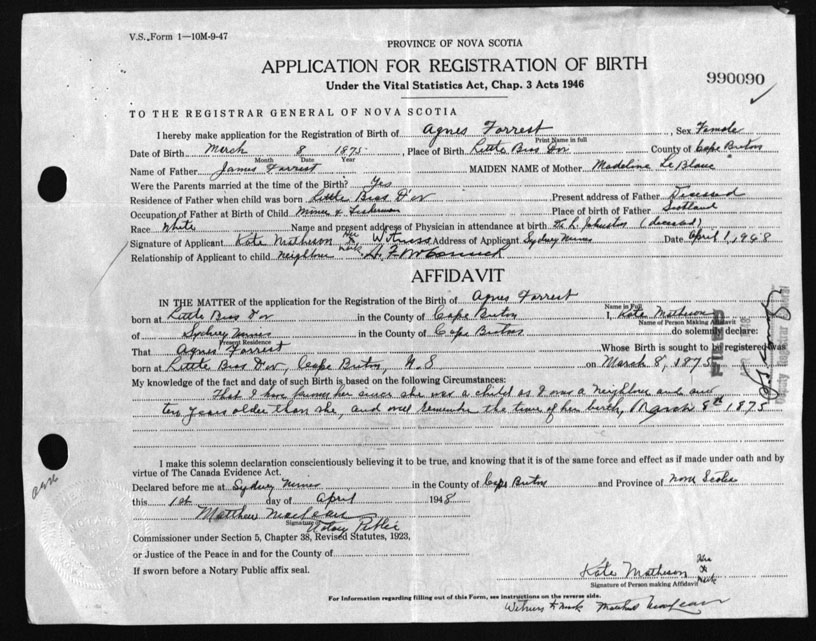 V.S. Form 1—10M-9-47
PROVINCE OF NOVA SCOTIA
APPLICATION FOR REGISTRATION OF BIRTH
Under the Vital Statistics Act, Chap. 3 Acts 1946
990090
TO THE REGISTRAR GENERAL OF NOVA SCOTIA
I hereby make application for the Registration of Birth of Agnes Forrest, Sex Female
Print Name in full
Date of Birth March 8 1875, Place of Birth Little Bras Dor County of Cape Breton
Month Date Year
Name of Father James Forrest MAIDEN NAME of Mother Madeline Le Blanc
Were the Parents married at the time of the Birth? Yes
Residence of Father when child was born Little Bras D'or Present address of Father Diseased
Occupation of Father at Birth of Child Miner & Fisherman Place of birth of Father Scotland
Race White Name and present address of Physician in attendance at birth L. Johnston (deceased)
Signature of Applicant Kate Matheson Her X Mark Witness Address of Applicant Sydney Mines Date April 1, 1948
Relationship of Applicant to child Neighbour McCormick
AFFIDAVIT
IN THE MATTER of the application for the Registration of the Birth of Agnes Forrest
Name in Full
born at Little Bras Dor in the County of Cape Breton I, Kate Matheson
Name of Person Making Affidavit
of Sydney Mines in the County of Cape Breton do solemnly declare:
Present Residence
That Agnes Forrest Whose Birth is sought to be registered was
born at Little Bras Dor, Cape Breton, N.S on March 8, 1875
My knowledge of the fact and date of such Birth is based on the following Circumstances:
That I have known her since she was a child as I was a neighbour and am
ten years older than she, and well remember the time of her birth, March 8th 1875
I make this solemn declaration conscientiously believing it to be true, and knowing that it is of the same force and effect as if made under oath and by
virtue of The Canada Evidence Act.
Declared before me at Sydney Mines in the County of Cape Breton and Province of Nova Scotia
this 1st day of April 1948
Matthew MacLean
Signature of
Notary Public
Commissioner under Section 5, Chapter 38, Revised Statutes, 1923,
or Justice of the Peace in and for the County of
If sworn before a Notary Public affix seal.
Kate Matheson Her X Mark
Signature of Person making Affidavit
For Information regarding filling out of this Form, see instructions on the reverse side.
Witness to Mark Matthew MacLean
FILED
Deputy Registrar General